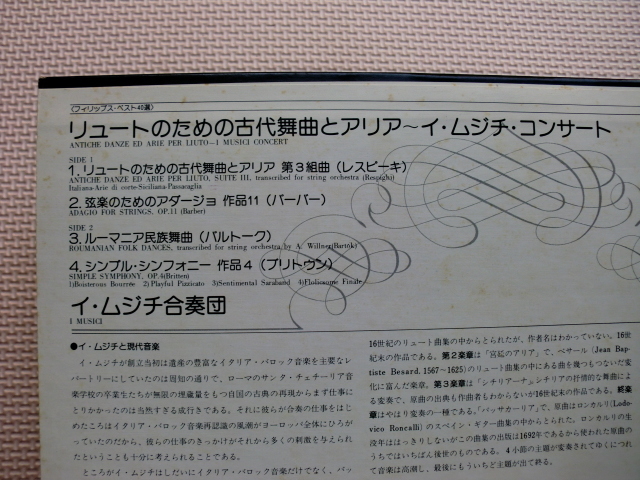 〈フィリップス・ベスト40選〉
リュートのための古代舞曲とアリア～イ・ムジチ・コンサート
ANTICHE DANZE ED ARIE PER LIUTO—I MUSICI CONCERT
SIDE 1
1. リュートのための古代舞曲とアリア 第3組曲 (レスピーキ)
ANTICHE DANZE ED ARIE PER LIUTO, SUITE III, transcribed for string orchestra (Respighi)
Italiana-Arie di corte-Siciliana-Passacaglia
2. 弦楽のためのアダージョ 作品11 (バーバー)
ADAGIO FOR STRINGS, OP.11 (Barber)
SIDE 2
3. ルーマニア民族舞曲 (バルトーク)
ROUMANIAN FOLK DANCES, transcribed for string orchestra by A. Willner(Bartók)
4. シンプル・シンフォニー 作品4 (ブリトゥン)
SIMPLE SYMPHONY, OP.4(Britten)
1)Boisterous Bourrée 2) Playful Pizzicato 3)Sentimental Saraband 4)Flolicsome Finale
イ・ムジチ合奏団
I MUSICI
●イ・ムジチと現代音楽
イ・ムジチが創立当初は遺産の豊富なイタリア・バロック音楽を主要なレ
パートリーにしていたのは周知の通りで、ローマのサンタ・チェチーリア音
楽学校の卒業生たちが無限の埋蔵量をもつ自国の古典の再現からまず仕事に
とりかかったのは当然すぎる成行きである。それに彼らが合奏の仕事をはじ
めたころはイタリア・バロック音楽再認識の風潮がヨーロッパ全体にひろが
っていたのだから、彼らの仕事のきっかけがそれから多くの刺激を与えられ
たということも十分に考えられることである。
ところがイ・ムジチはしだいにイタリア・バロック音楽だけでなく、バッ
16世紀のリュート曲集の中からとられたが、作者名はわかっていない。16世
紀末の作品である。第2楽章は「宮廷のアリア」で、ベサール(Jean Bap-
tiste Besard, 1567～1625)のリュート曲集の中にある曲を幾つもつないだ変
化に富んだ楽章。第3楽章は「シチリアーナ」=シチリアの抒情的な舞曲によ
る変奏で、原曲の出典も作曲者もわからないが16世紀末の作品である。終楽
章はやはり変奏の一種である。「パッサカーリア」で、原曲はロンカルリ(Lodo-
vico Roncalli)のスペイン・ギター曲集の中からとられた。ロンカルリの生
没年ははっきりしないがこの曲集の出版は1692年であるから使われた原曲の
うちではいちばん後世のものである。4小節の主題が変奏されてゆくにつれ
て音楽は高潮し、最後にもういちど主題が出て終る。